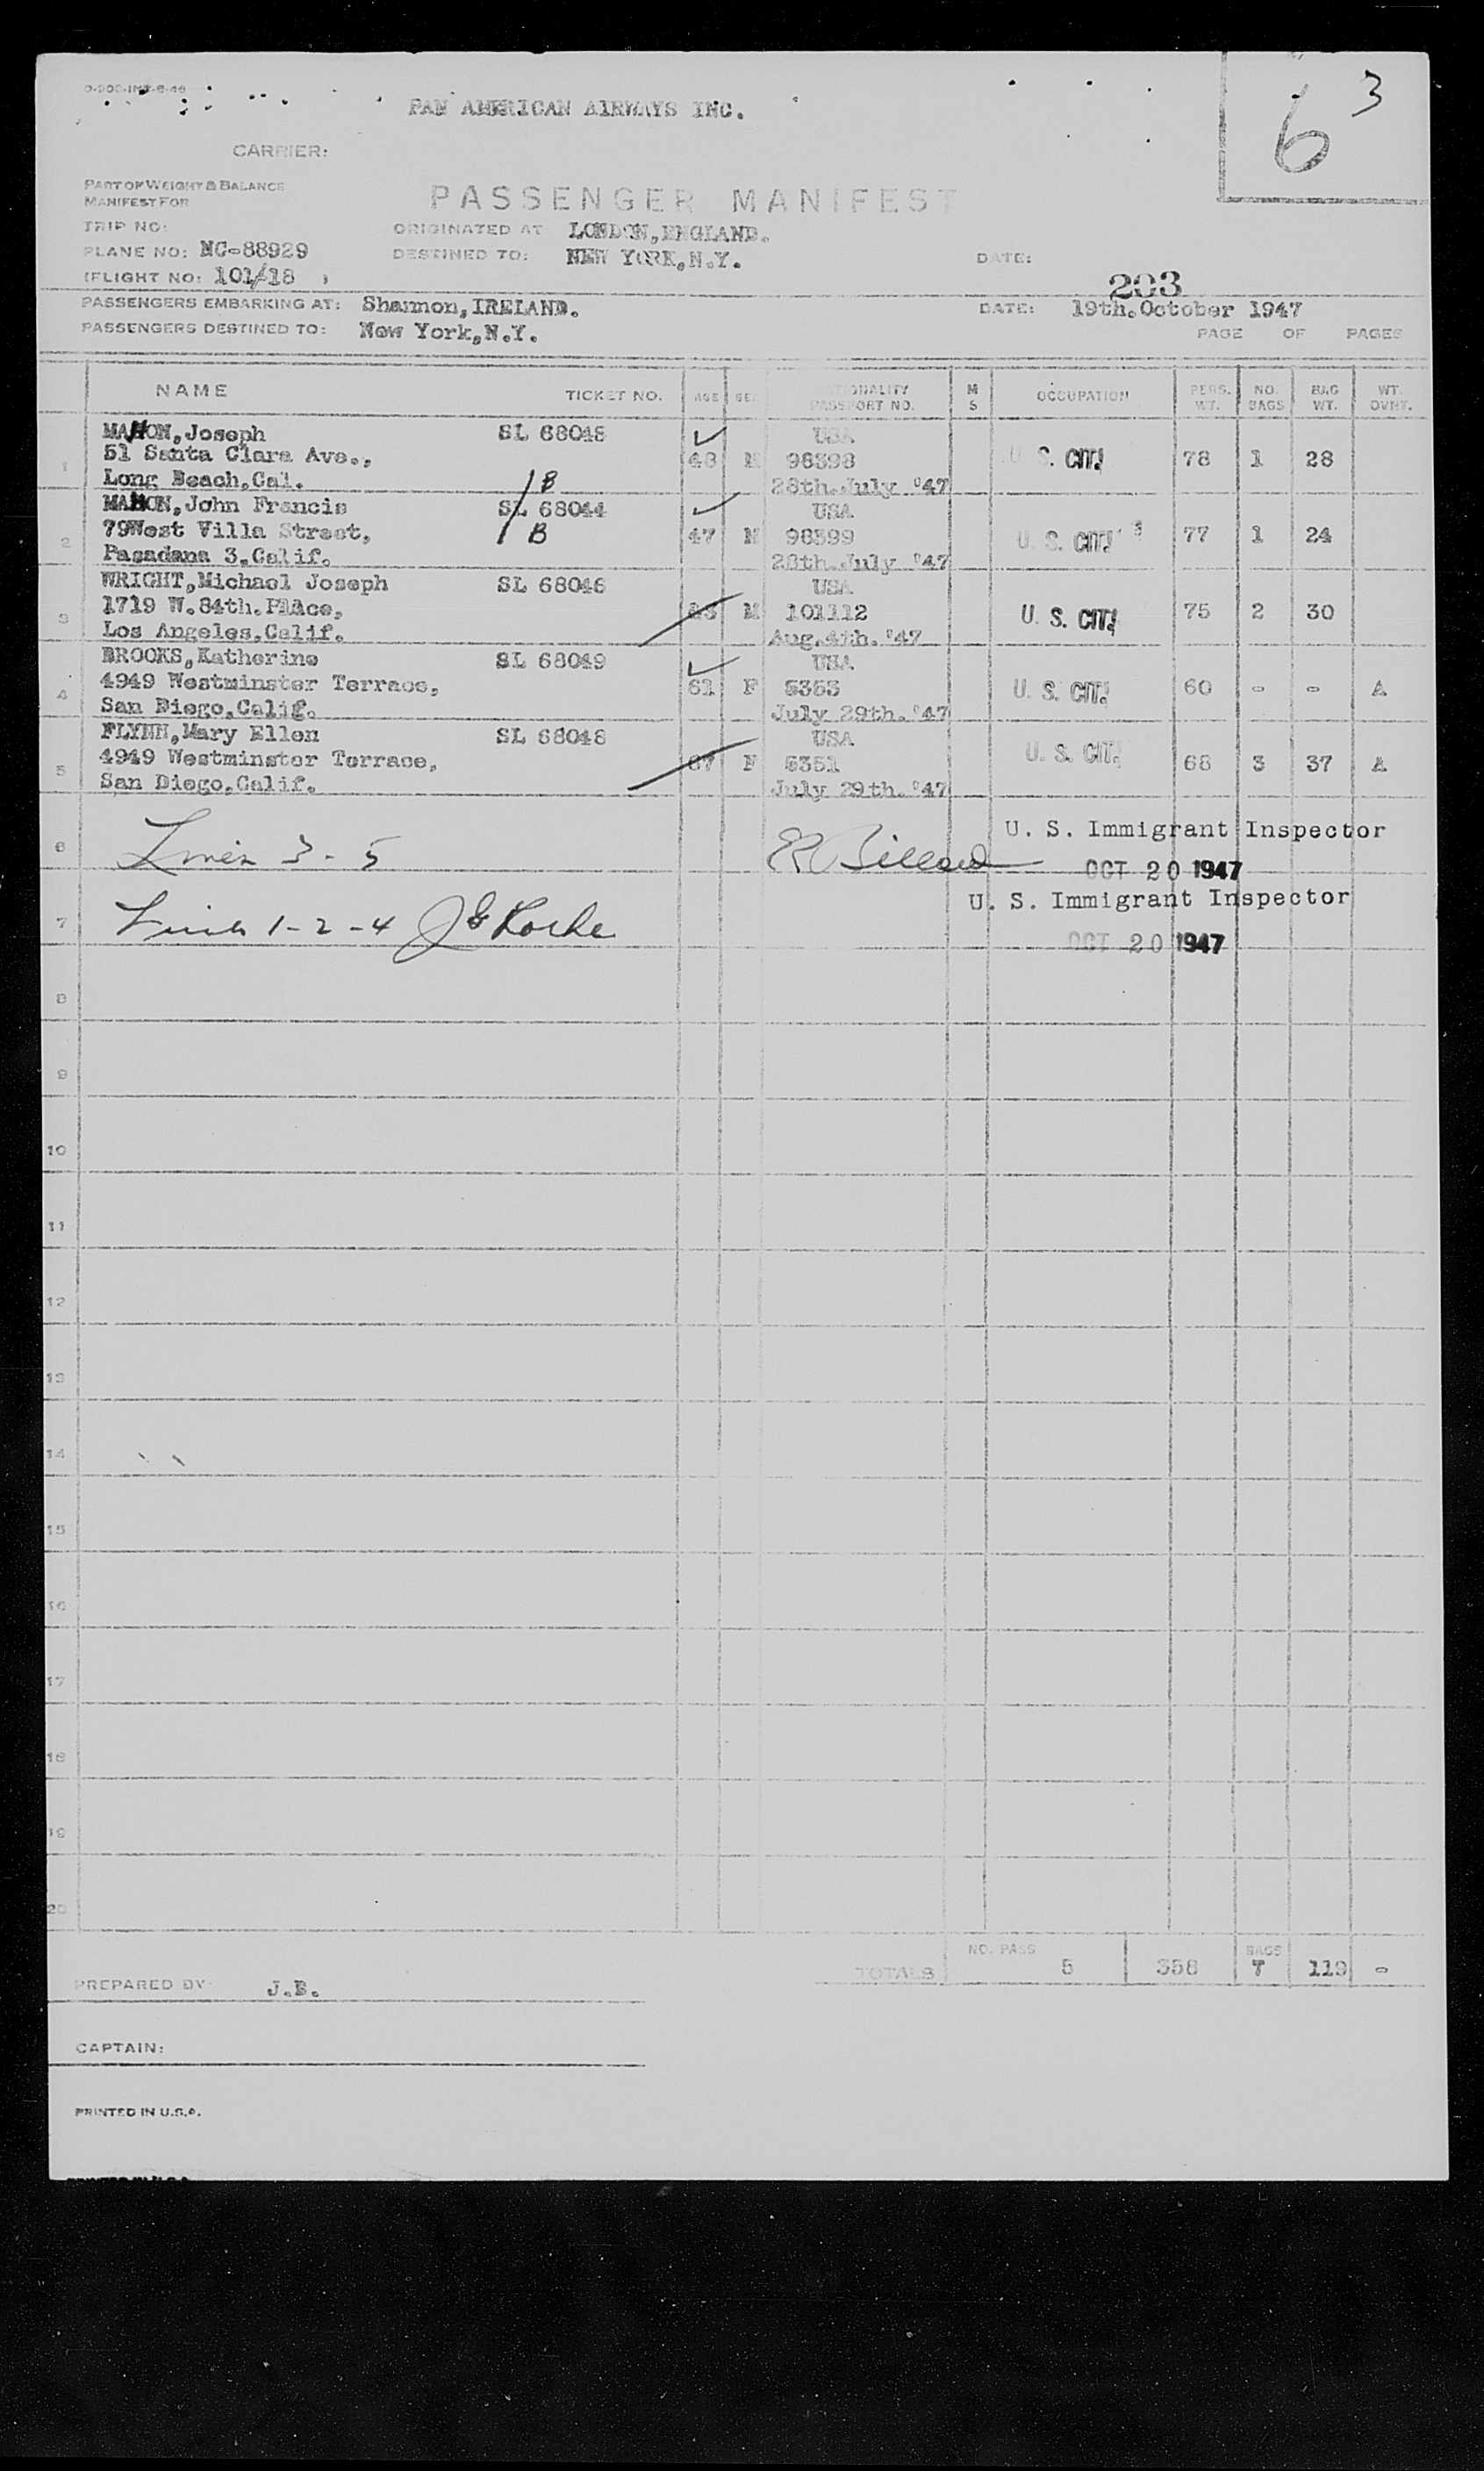 PAN AMERICAN AIRWAYS INC.
6 3
CARRIER:
PART OF WEIGHT & BALANCE
MANIFEST FOR
PASSENGER MANIFEST
TRIP NO:
ORIGINATED AT LONDON,ENGLAND.
PLANE NO: NC-88929
DESTINED TO: NEW YORK,N.Y.
DATE:
(FLIGHT NO: 101/18 )
203
PASSENGERS EMBARKING AT: Shannon,IRELAND.
DATE: 19th.October 1947
PASSENGERS DESTINED TO: New York,N.Y.
PAGE OF PAGES
NAME TICKET NO. AGE SEX NATIONALITY PASSPORT NO. M S OCCUPATION PERS. WT. NO. BAGS BAG WT. WT. OVHT.
MAHON,Joseph SL 68045 USA
1 51 Santa Clara Ave., 48 M 98398 U. S. CIT. 78 1 28
Long Beach,Cal. 1B 28th.July '47
MAHON,John Francis SL 68044 USA
2 79West Villa Street, 1 B 47 M 98399 U. S. CIT. 77 1 24
Pasadena 3.Calif. 28th.July '47
WRIGHT,Michael Joseph SL 68046 USA
3 1719 W.84th.Place, M 101112 U. S. CIT. 75 2 30
Los Angeles.Calif. Aug.4th.'47
BROOKS,Katherine SL 68049 USA
4 4949 Westminster Terrace, 61 F 5353 U. S. CIT. 60 - - A
San Diego,Calif. July 29th.'47
FLYNN,Mary Ellen SL 68048 USA
5 4949 Westminster Terrace, 67 F 5351 U. S. CIT. 68 3 37 A
San Diego,Calif. July 29th.'47
U. S. Immigrant Inspector
6 Lines 3-5
OCT 20 1947
U. S. Immigrant Inspector
7 Lines 1-2-4
OCT 20 1947
8
9
10
11
12
13
14
15
16
17
18
19
20
NO. PASS BAGS
TOTALS 5 358 7 119 -
PREPARED BY J.B.
CAPTAIN:
PRINTED IN U.S.A.